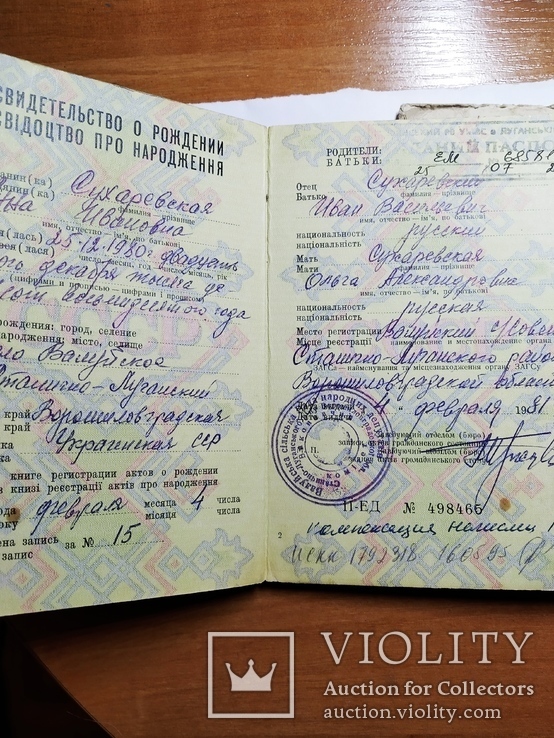 СВИДЕТЕЛЬСТВО О РОЖДЕНИИ
СВІДОЦТВО ПРО НАРОДЖЕННЯ
Сухаревская
фамилия – прізвище
Ивановна
имя, отчество – ім'я, по батькові
25.12.1980г двадцать
число, месяц, год – число, місяць, рік
ого декабря тысяча де
цифрами и прописью – цифрами і прописом
сот восьмидесятого года
рождения: город, селение
народження: місто, селище
ло Валуйское
Станично-Луганский
край Ворошиловградская
краї Украинская сср
книге регистрации актов о рождении
книзі реєстрації актів про народження
года февраля месяца 4 числа
року місяця числа
запись за № 15
запис
РОДИТЕЛИ:
БАТЬКИ:
ЕМ
25 07
Отец Сухаревский
Батько фамилия – прізвище
Иван Васильевич
имя, отчество – ім'я, по батькові
национальность русский
національність
Мать Сухаревская
Мати фамилия – прізвище
Ольга Александровна
имя, отчество – ім'я, по батькові
национальность русская
національність
Место регистрации Валуйский с/совет
Місце реєстрації наименование и местонахождение органа
Станично-Луганского район
ЗАГСа – найменування та місцезнаходження органу ЗАГСу
Ворошиловградской области
Дата выдачи 4 февраля 1981
Дата видачи
записи актов гражданского состояния
II-ЕД № 498465
2
компенсация
1792318 160595
VIOLITY
Auction for Collectors
auction.violity.com